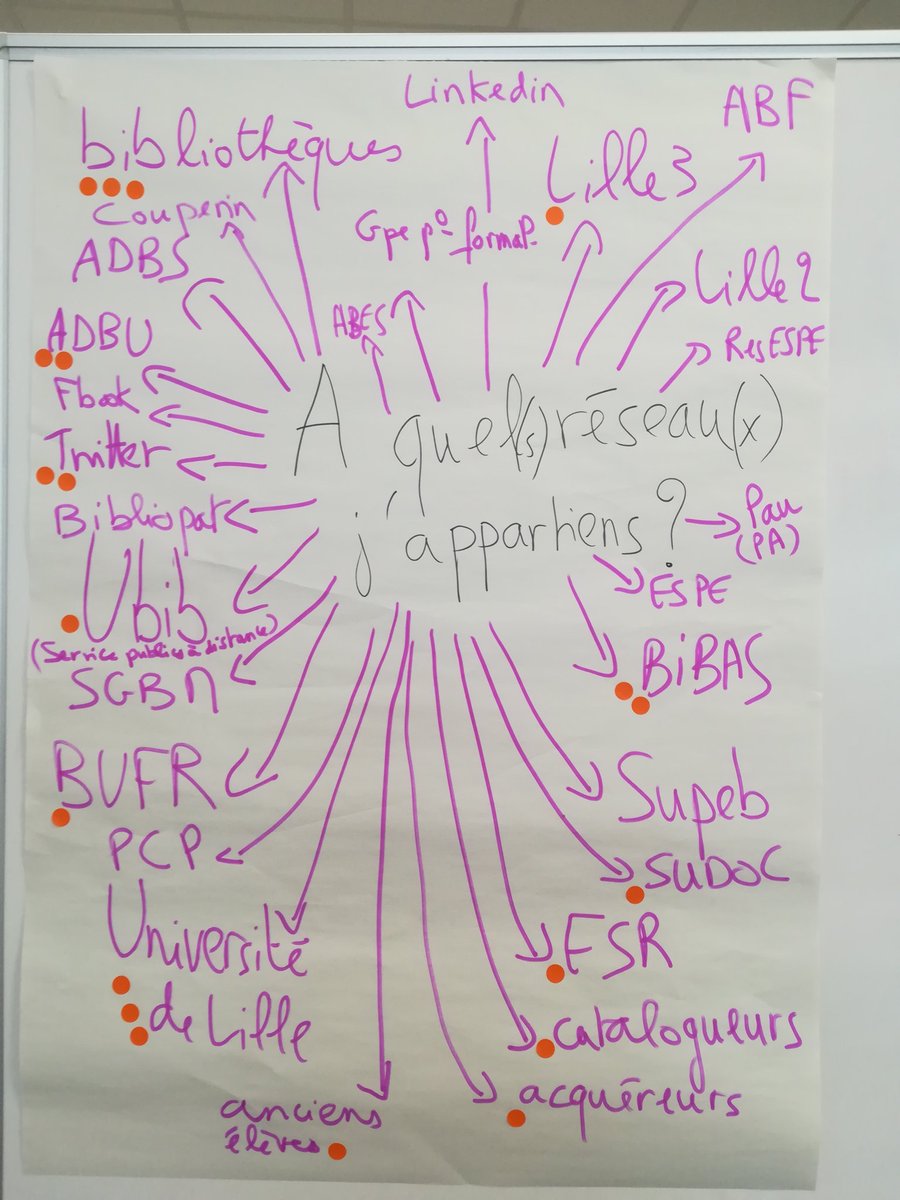 Linkedin
ABF
bibliothèques
Lille3
Couperin
Gpe p° format°
ADBS
Lille2
ABES
ResESPE
ADBU
Fbook
Twitter
A quel(s) réseau(x)
j'appartiens ?
Bibliopat
Pau
(PA)
Ubib
(Service publics à distance)
ESPE
SGBM
BiBAS
BUFR
Supeb
PCP
SUDOC
Université
de Lille
ESR
catalogueurs
acquéreurs
anciens
élèves